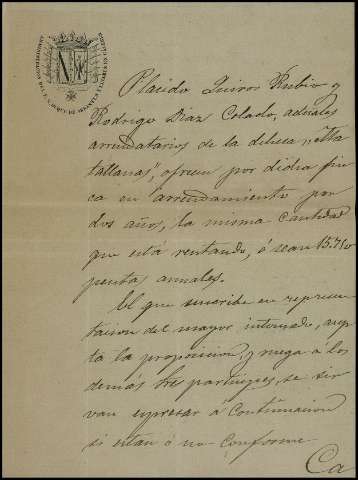 Placido Quiros Rubio y
Rodrigo Diaz Colado, actuales
arrendatarios de la dehesa
ofrecen por dicha fin
ca en arrendamiento por
dos años, la misma cantidad
que está rentando, ó sean 15.750
pesetas anuales.
El que suscribe en represen
tacion del mayor interesado, acep
ta la proposicion, y ruega á los
demás partícipes, se sir
van espresar á continuacion
si estan ó no conforme
Ca